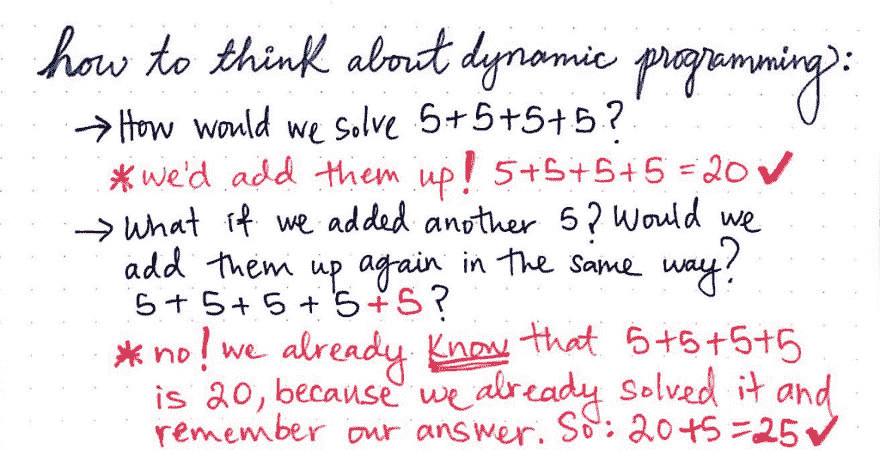 how to think about dynamic programming:
→ How would we solve 5+5+5+5?
* we'd add them up! 5+5+5+5 = 20 ✓
→ What if we added another 5? Would we
add them up again in the same way?
5 + 5 + 5 + 5 + 5?
* no! we already know that 5+5+5+5
is 20, because we already solved it and
remember our answer. So: 20+5=25 ✓